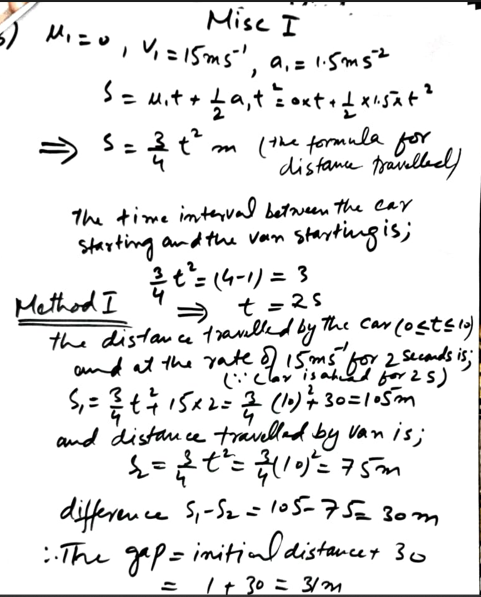 Misc I
5) u₁=0, V₁=15ms⁻¹, a₁=1.5ms⁻²
S = u₁t + ½a₁t² = 0xt + ½ x1.5xt²
⇒ S = 3/4 t² m (the formula for
distance travelled)
The time interval between the car
starting and the van starting is;
3/4 t² = (4-1) = 3
⇒ t = 2s
Method I
the distance travelled by the car (0≤t≤10)
and at the rate of 15ms⁻¹ for 2 seconds is;
(∵ Car is ahead for 2s)
S₁ = 3/4 t² + 15x2 = 3/4 (10)² + 30 = 105m
and distance travelled by van is;
S₂ = 3/4 t² = 3/4 (10)² = 75m
difference S₁-S₂ = 105-75 = 30m
∴ The gap = initial distance + 30
= 1 + 30 = 31m